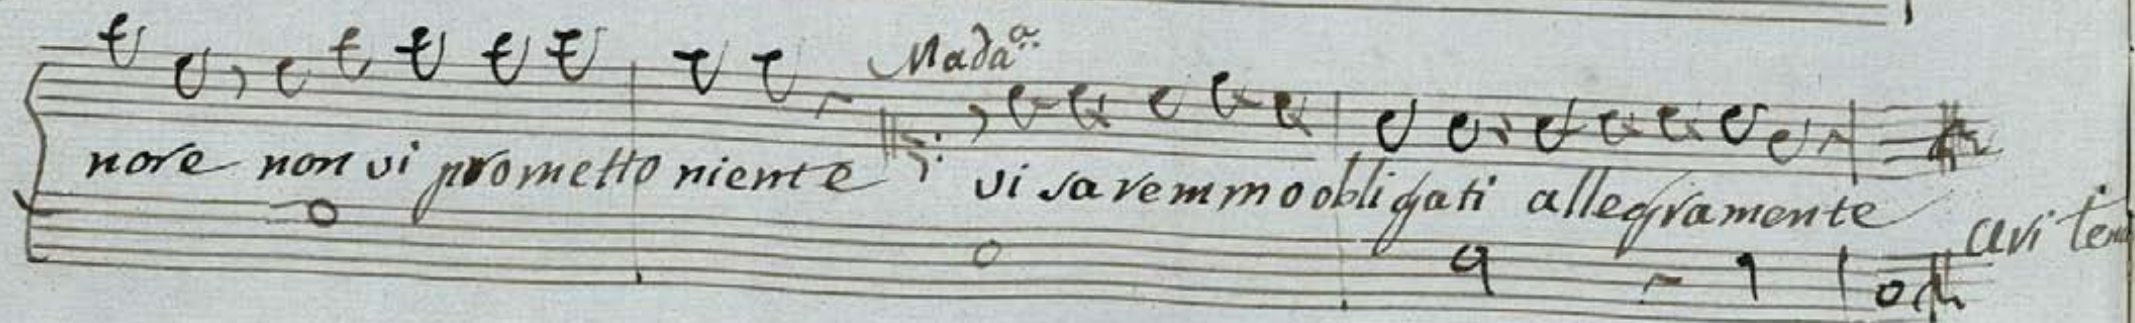 Mada.ª
nore non vi prometto niente vi saremmo obligati allegramente